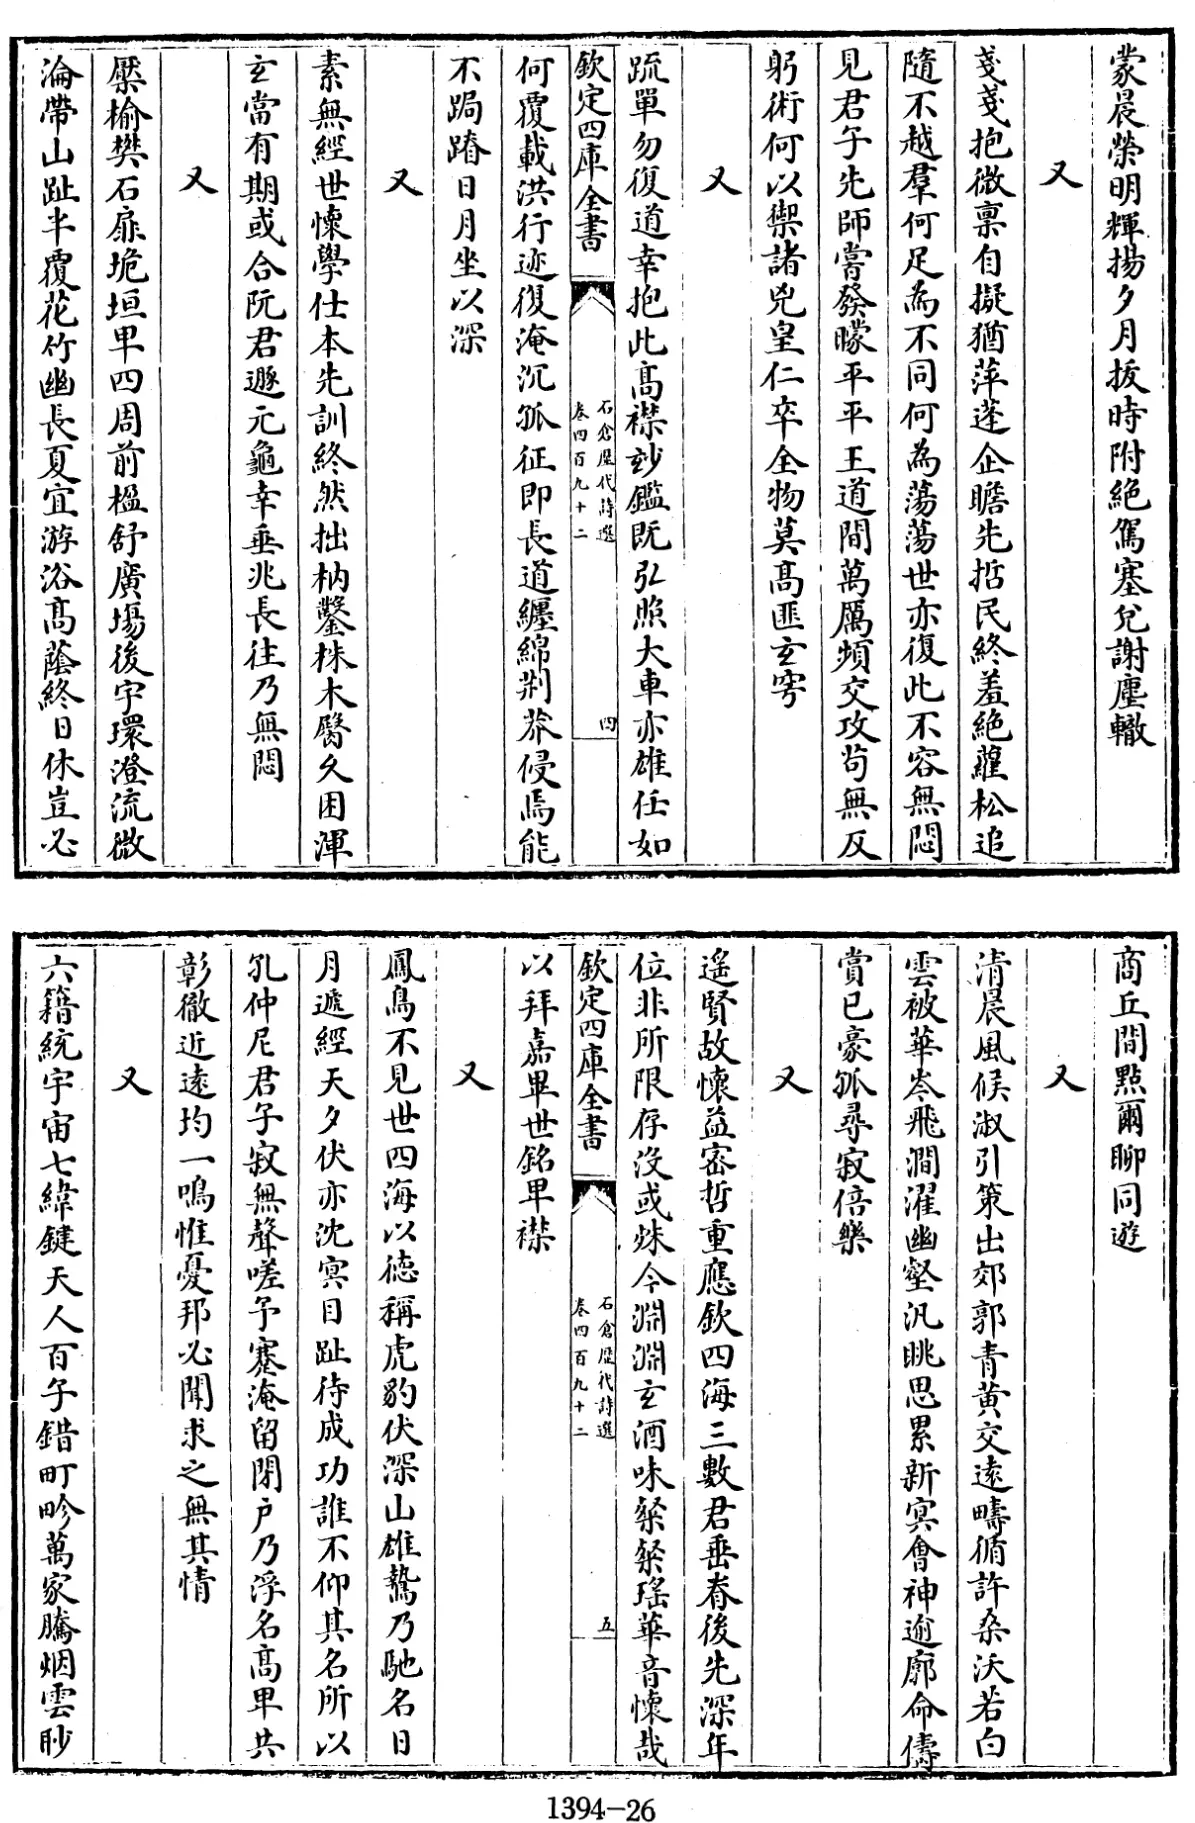 蒙晨榮明輝揚夕月扳時附絶駕塞兊謝塵轍
又
戔戔抱微禀自擬猶萍蓬企瞻先哲民終羞絶蘿松追
隨不越羣何足為不同何為蕩蕩世亦復此不容無悶
見君子先師嘗發矇平平王道間萬厲頻交攻茍無反
躬術何以禦諸兇皇仁卒全物莫髙匪玄穹
又
疏單勿復道幸抱此髙襟玅鑑既弘照大車亦雄任如
欽定四庫全書
石倉歴代詩選
卷四百九十二
四
何覆載洪行迹復淹沉孤征即長道纒綿荆莽侵焉能
不跼蹐日月坐以深
又
素無經世懷學仕本先訓終然拙枘鑿株木臋久困渾
玄當有期或合阮君遯元龜幸垂兆長往乃無悶
又
壓榆樊石扉垝垣卑四周前楹舒廣場後宇環澄流微
淪帶山趾半覆花竹幽長夏宜游浴髙蔭終日休豈必
商丘間㸃爾聊同遊
又
清晨風候淑引策出郊郭青黄交遠疇脩許桑沃若白
雲被華岑飛澗濯幽壑汎眺思累新冥會神逾廓命儔
賞已豪孤尋寂倍樂
又
遥賢故懷益宻哲重應欽四海三數君垂眷後先深年
位非所限存沒或殊今淵淵玄酒味粲粲瑶華音懷哉
欽定四庫全書
石倉歴代詩選
卷四百九十二
五
以拜嘉畢世銘卑襟
又
鳳鳥不見世四海以德稱虎豹伏深山雄鷙乃馳名日
月遞經天夕伏亦沈㝠目趾待成功誰不仰其名所以
孔仲尼君子寂無聲嗟予蹇淹留閉户乃浮名髙卑共
彰徹近遠均一鳴惟憂邦必聞求之無其情
又
六籍統宇宙七緯鍵天人百子錯町畛萬家騰烟雲眇
1394-26